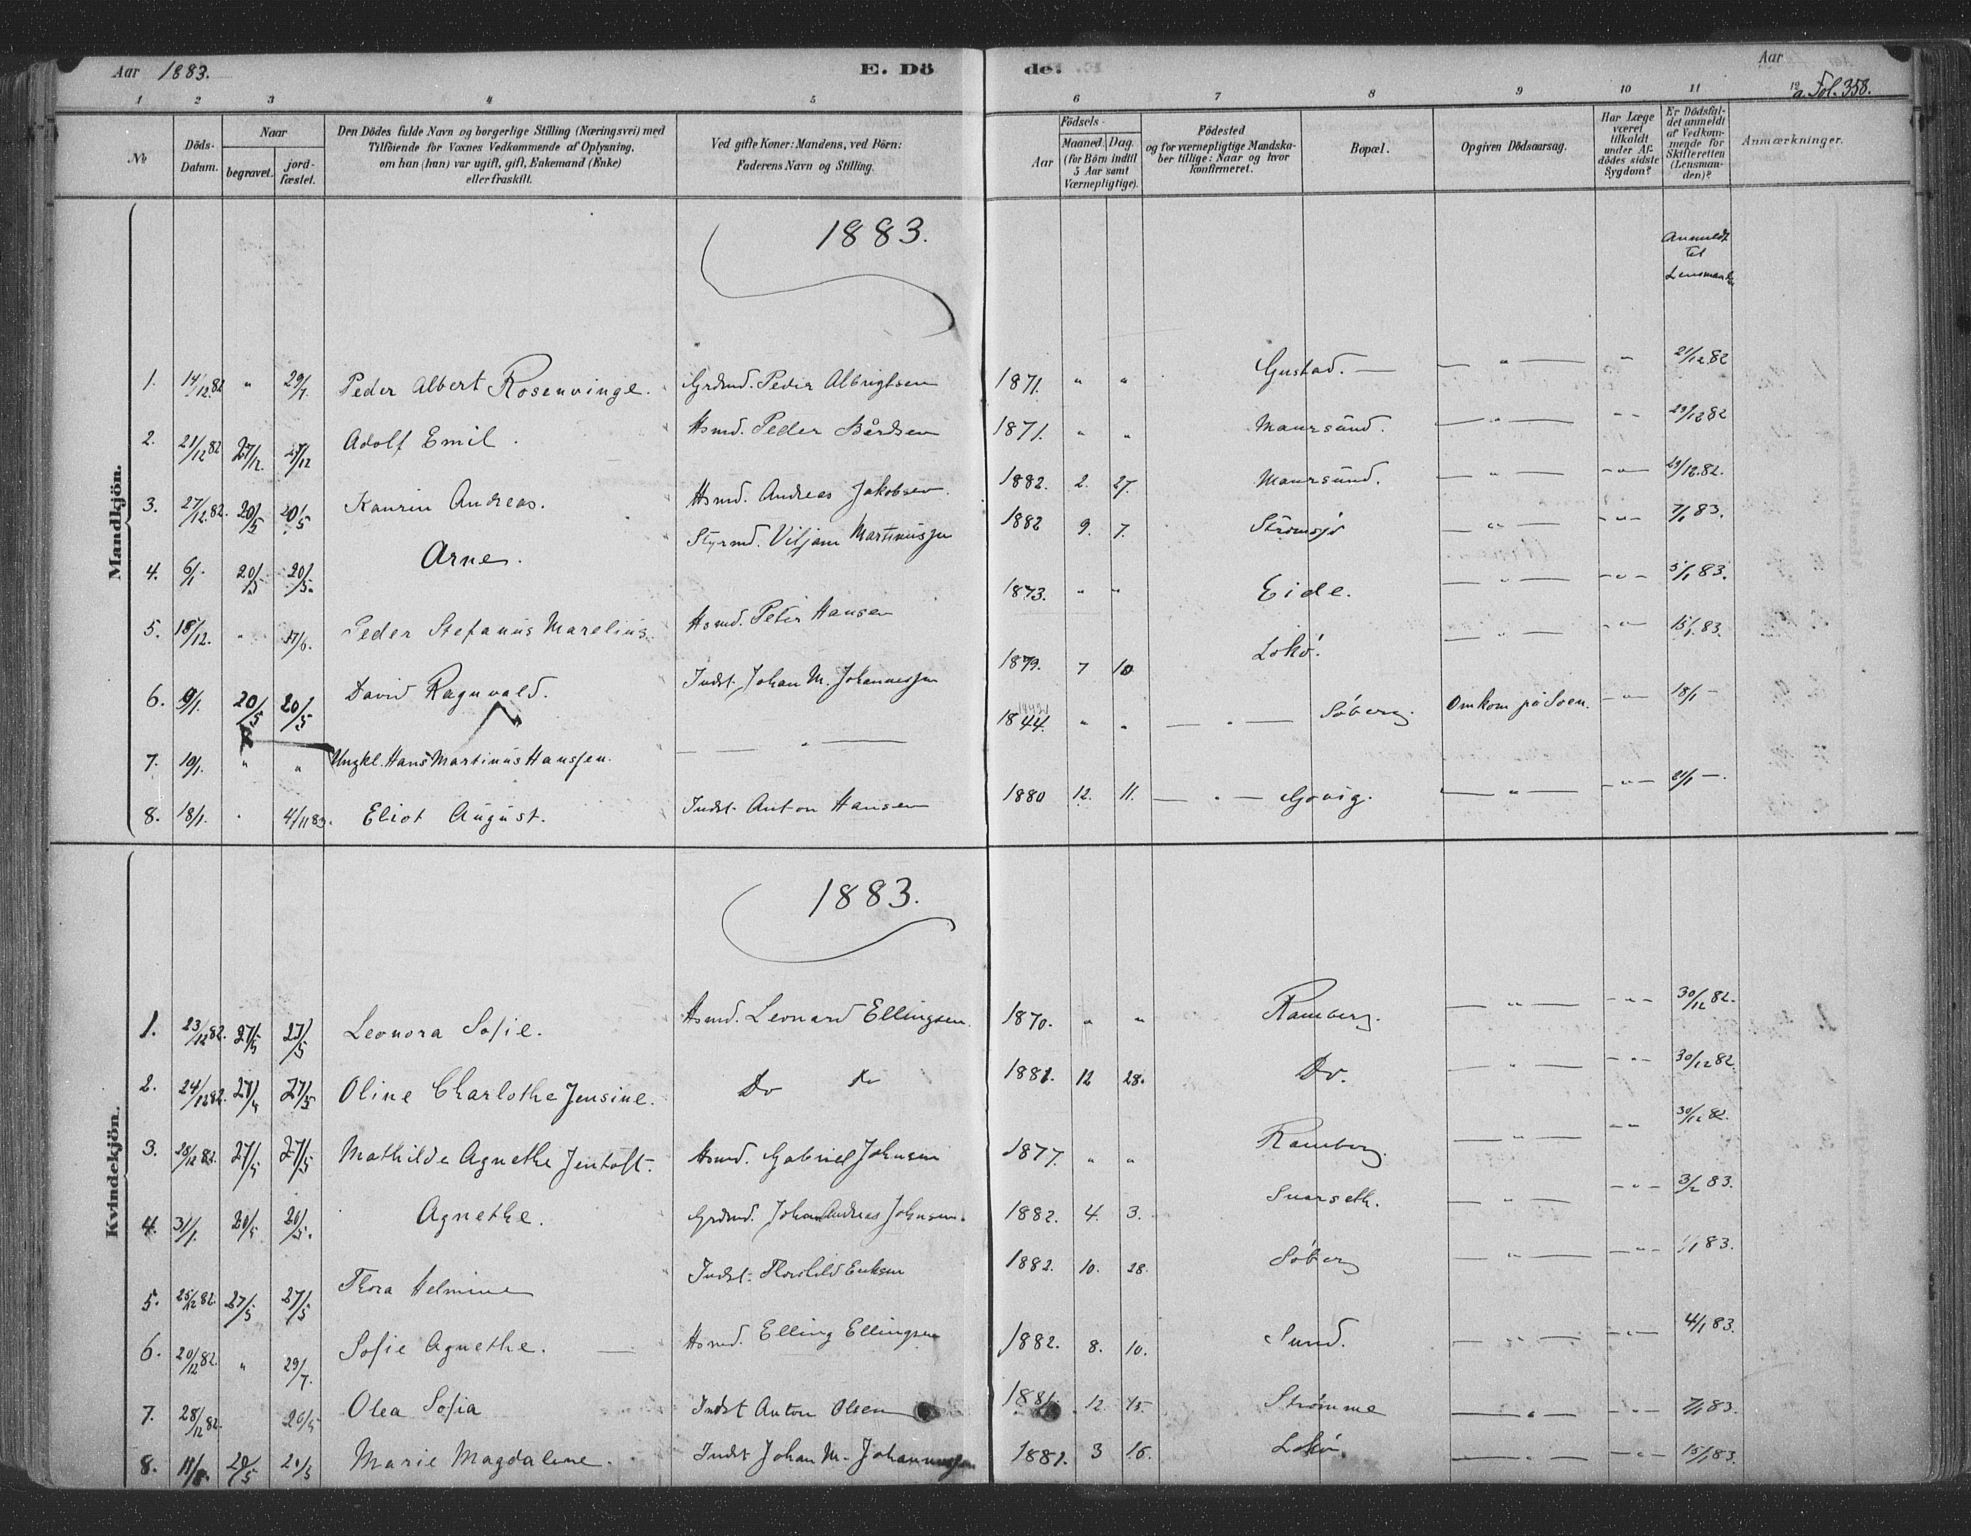 Aar 1883. E. Dö
de. Aar
Fol. 358.
1 2 3 4 5 6 7 8 9 10 11 12
№ Döds-Datum. Naar begravet. jord-fæstet. Den Dödes fulde Navn og borgerlige Stilling (Næringsvei) med Tilföiende for Voxnes Vedkommende af Oplysning, om han (hun) var ugift, gift, Enkemand (Enke) eller fraskilt. Ved gifte Koner: Mandens, ved Börn: Faderens Navn og Stilling. Födsels- Aar Maaned Dag. (for Börn indtil 5 Aar samt Værnepligtige). Födested og for værnepligtige Mandskaber tillige: Naar og hvor konfirmeret. Bopæl. Opgiven Dödsaarsag. Har Læge været tilkaldt under Afdödes sidste Sygdom? Er Dödsfaldet anmeldt af Vedkommende for Skifteretten (Lensmanden)? Anmærkninger.
Mandkjön.
1883.
Anmeldt til Lensmanden
1. 14/12.82 " 29/7. Peder Albert Rosenvinge. Grdmd. Peder Albrigtsen 1871. " " Gustad. — — " — " 21/12.82
2. 21/12 82 27/12. 27/12 Adolf Emil. Hsmd. Peder Bårdsen 1871. " " Maursund. — " — - " - 29/12 82
3. 27/12.82. 20/5 20/5. Kaurin Andreas. Hsmd. Andreas Jakobsen. 1882. 2. 27. Maursund. — " — - " - 29/12.82.
4. 6/1. 20/5 20/5. Arne. Styrmd. Viljam Martinussen 1882 9. 7. Strømsjø — " — - " - 7/1 83.
5. 18/12. " 17/6. Peder Stefanus Marelius. Hsmd. Peter Hansen 1873. " " Eide. — " — - " - 5/1 83.
6. 9/1. 20/5 20/5 David Ragnvald. Indst. Johan M. Johannessen 1879. 7 10 Lokø. — " — - " - 15/1.83.
7. 10/1. " " Ungkl. Hans Martinus Hanssen. — " — 1844. " " — " — Søberg. Omkom på Søen. - " - 18/1 —
8. 18/1. " 4/11 83. Eliot August. Indst. Anton Hansen 1880 12. 11. — " — Gjøvig. — " — - " - 21/1 —.
Kvindekjön.
1883.
1. 23/12 82. 27/5 27/5 Leonora Sofie. Hsmd. Leonard Ellingsen. 1870. " " Ramberg. — " — - " - 30/12 82.
2. 24/12 82. 27/5 27/5 Oline Charlothe Jensine. Do Do 1881. 12 28. Do. — " — - " - 30/12 82.
3. 28/12 82. 27/5 27/5 Mathilde Agnethe Jentoft. Hsmd. Gabriel Johnsen 1877. " " Ramberg. — " — - " - 30/12 82.
4. 31/1. 20/5 20/5. Agnethe. Grdmd. Johan Andreas Johnsen. 1882. 4. 3. — " — - " - 3/2 83.
5. 25/12 82. 27/5 27/5 Flora Helmine Indst. Eriksen 1882. 10. 28. Søberg — " — - " - 1/1 83.
6. 20/12 82. " 29/7. Sofie Agnethe. — Hsmd. Elling Ellingsen 1882. 8. 10. Sund. — " — - " - 4/1 83.
7. 28/12 82. 20/5 Olea Sofia Indst Anton Olsen 1881. 12. 15. Strømme — " — 7/1 83.
8. 20/5 20/5 Marie Magdalene. Indst Johan M. Johannessen 1881. 3 16. Lokø. — " — - " - 15/1 83.